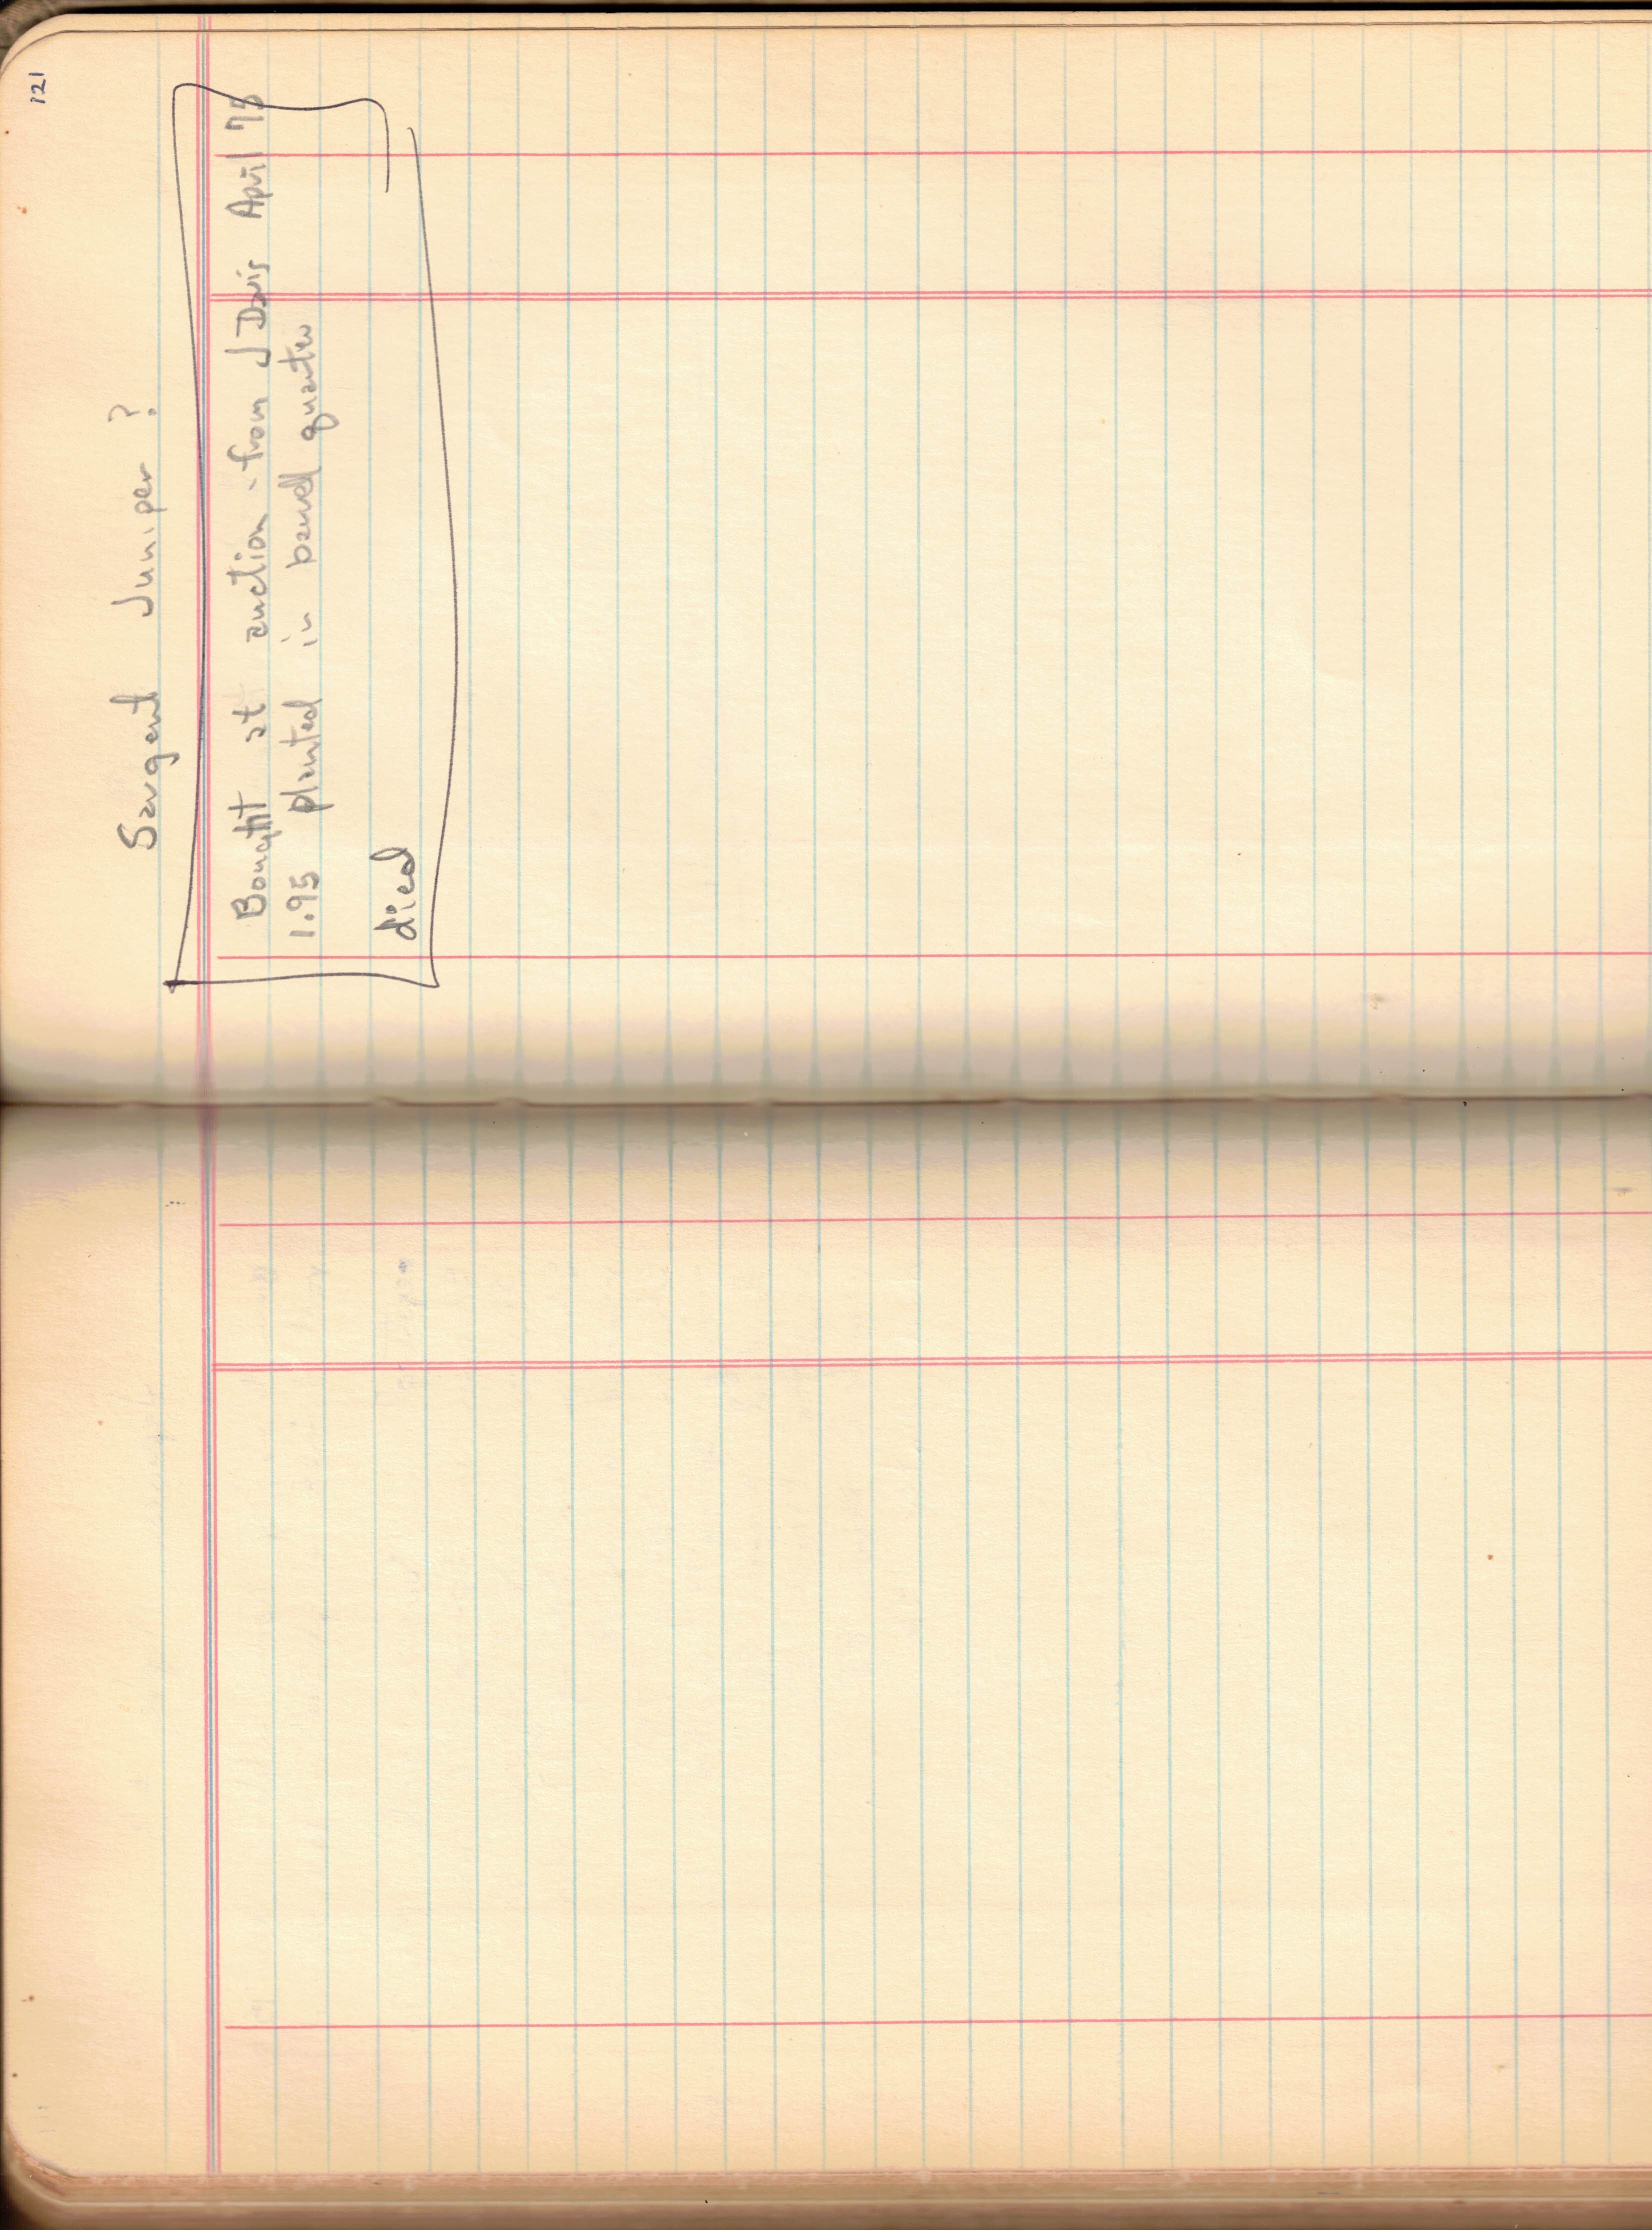 121
Sargent Juniper ?
Bought at auction - from J Davis April 75
1.95 planted in barrell quarter
died